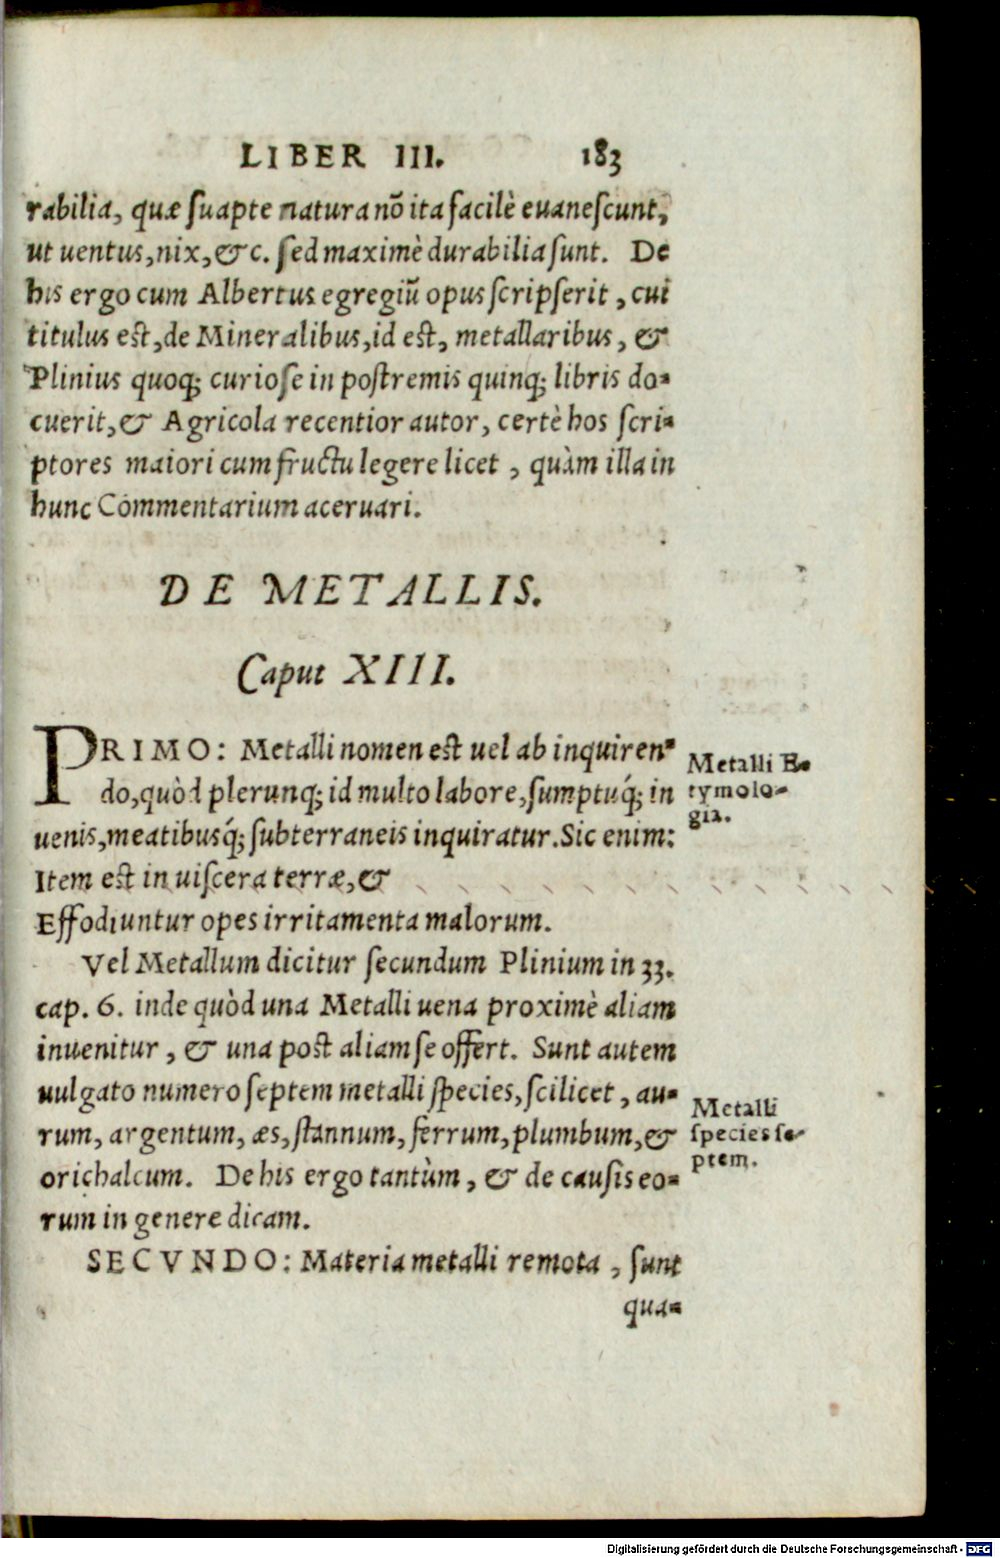 LIBER III. 183
rabilia, quæ suapte natura nõ ita facilè euanescunt,
ut uentus, nix, &c. sed maximè durabilia sunt. De
his ergo cum Albertus egregiũ opus scripserit, cui
titulus est, de Mineralibus, id est, metallaribus, &
Plinius quoq; curiose in postremis quinq; libris do-
cuerit, & Agricola recentior autor, certè hos scri-
ptores maiori cum fructu legere licet, quàm illa in
hunc Commentarium aceruari.
DE METALLIS.
Caput XIII.
PRIMO: Metalli nomen est uel ab inquiren-
do, quòd plerunq; id multo labore, sumptuq́; in
uenis, meatibusq́; subterraneis inquiratur. Sic enim:
Item est in uiscera terræ, &
Effodiuntur opes irritamenta malorum.
Vel Metallum dicitur secundum Plinium in 33.
cap. 6. inde quòd una Metalli uena proximè aliam
inuenitur, & una post aliam se offert. Sunt autem
uulgato numero septem metalli species, scilicet, au-
rum, argentum, æs, stannum, ferrum, plumbum, &
orichalcum. De his ergo tantùm, & de causis eo-
rum in genere dicam.
SECVNDO: Materia metalli remota, sunt
qua-
Metalli E-
tymolo-
gia.
Metalli
species se-
ptem.
Digitalisierung gefördert durch die Deutsche Forschungsgemeinschaft - DFG